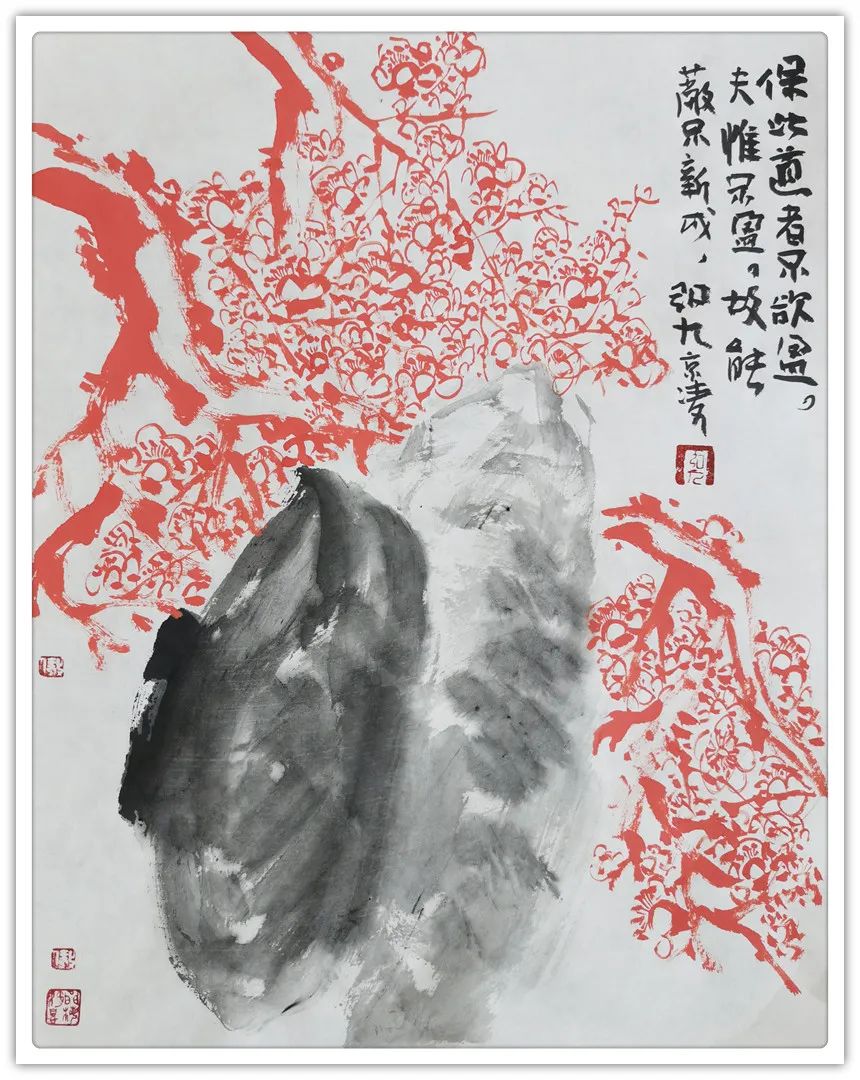 保此道者不欲盈。
夫惟不盈，故能
蔽不新成，九京